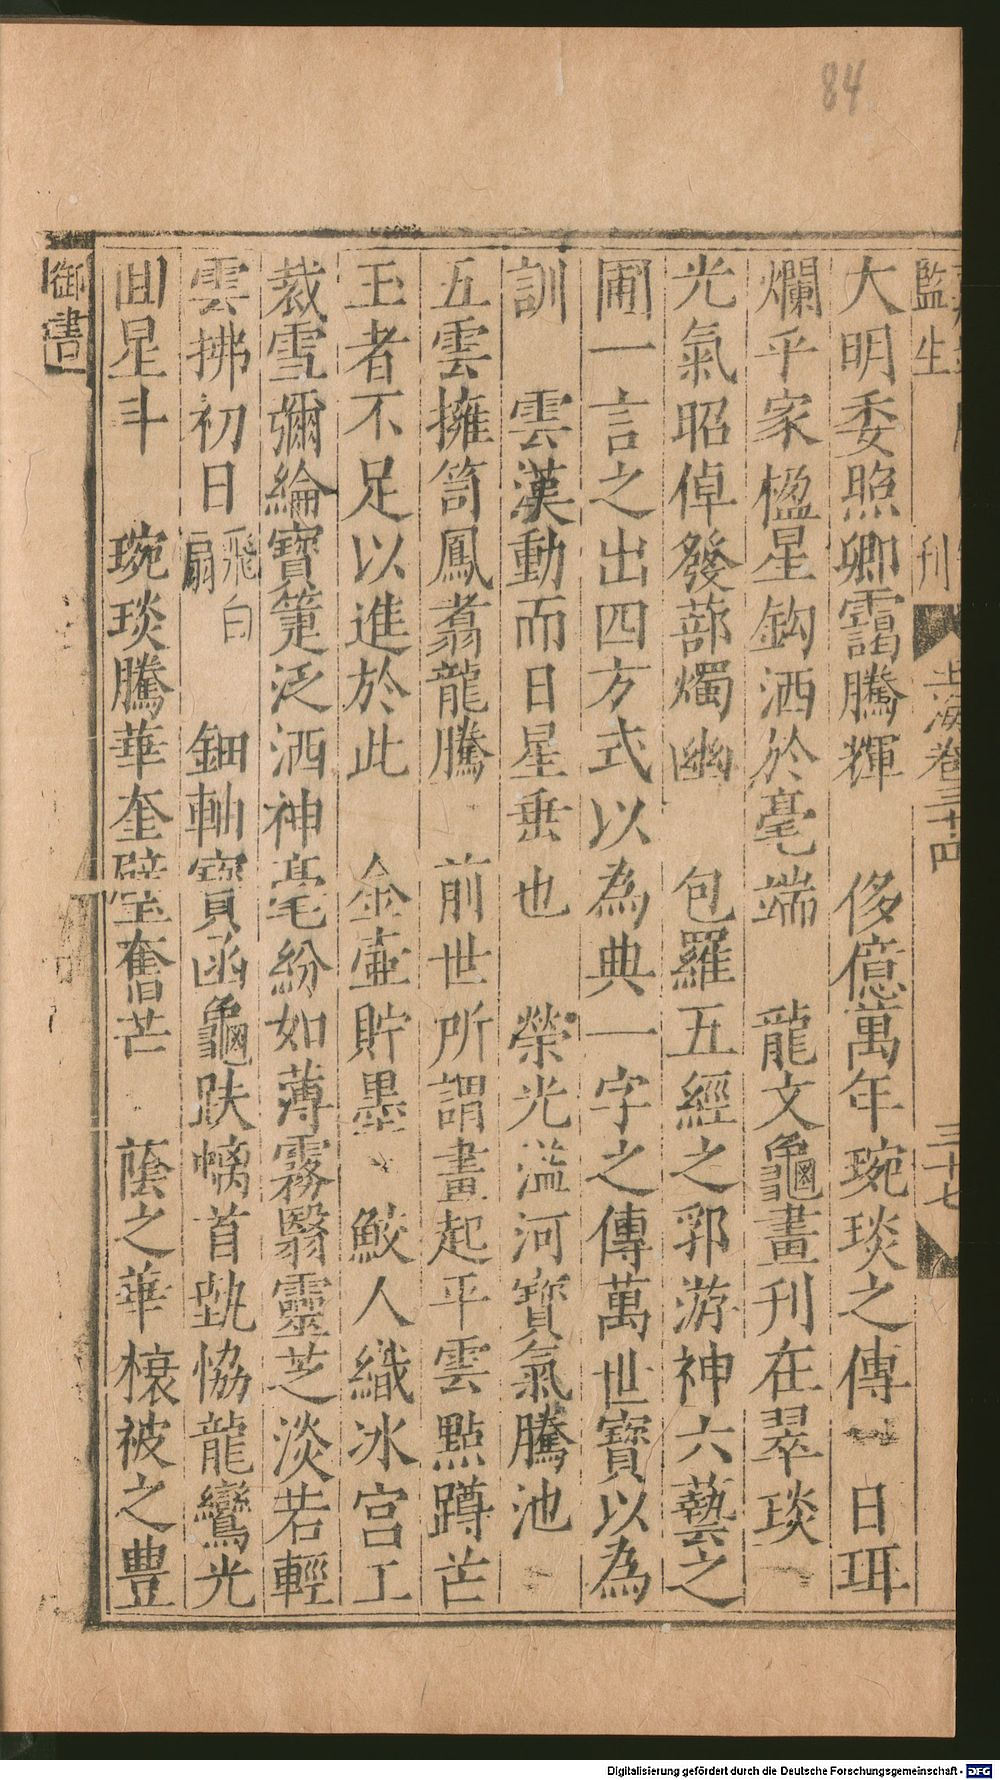 84
監生
刊
玉海卷三十四
三十七
大明委照卿靄騰輝　侈億萬年琬琰之傳　日珥
爛乎家楹星鈎洒於毫端　龍文龜畫刊在翠琰
光氣昭倬發蔀燭幽　包羅五經之郛游神六藝之
圃一言之出四方式以為典一字之傳萬世寶以為
訓　雲漢動而日星垂也　榮光溢河寶氣騰池
五雲擁笥鳳翥龍騰　前世所謂畫起平雲點蹲芒
玉者不足以進於此　金壷貯墨　鮫人織冰宮工
裁雪彌綸寶篁泛洒神毫紛如薄霧翳靈芝淡若輕
雲拂初日飛白扇　鈿軸寶函龜趺螭首埶恊龍鸞光
回星斗　琬琰騰華奎壁奮芒　蔭之華榱被之豊
御書
Digitalisierung gefördert durch die Deutsche Forschungsgemeinschaft - DFG